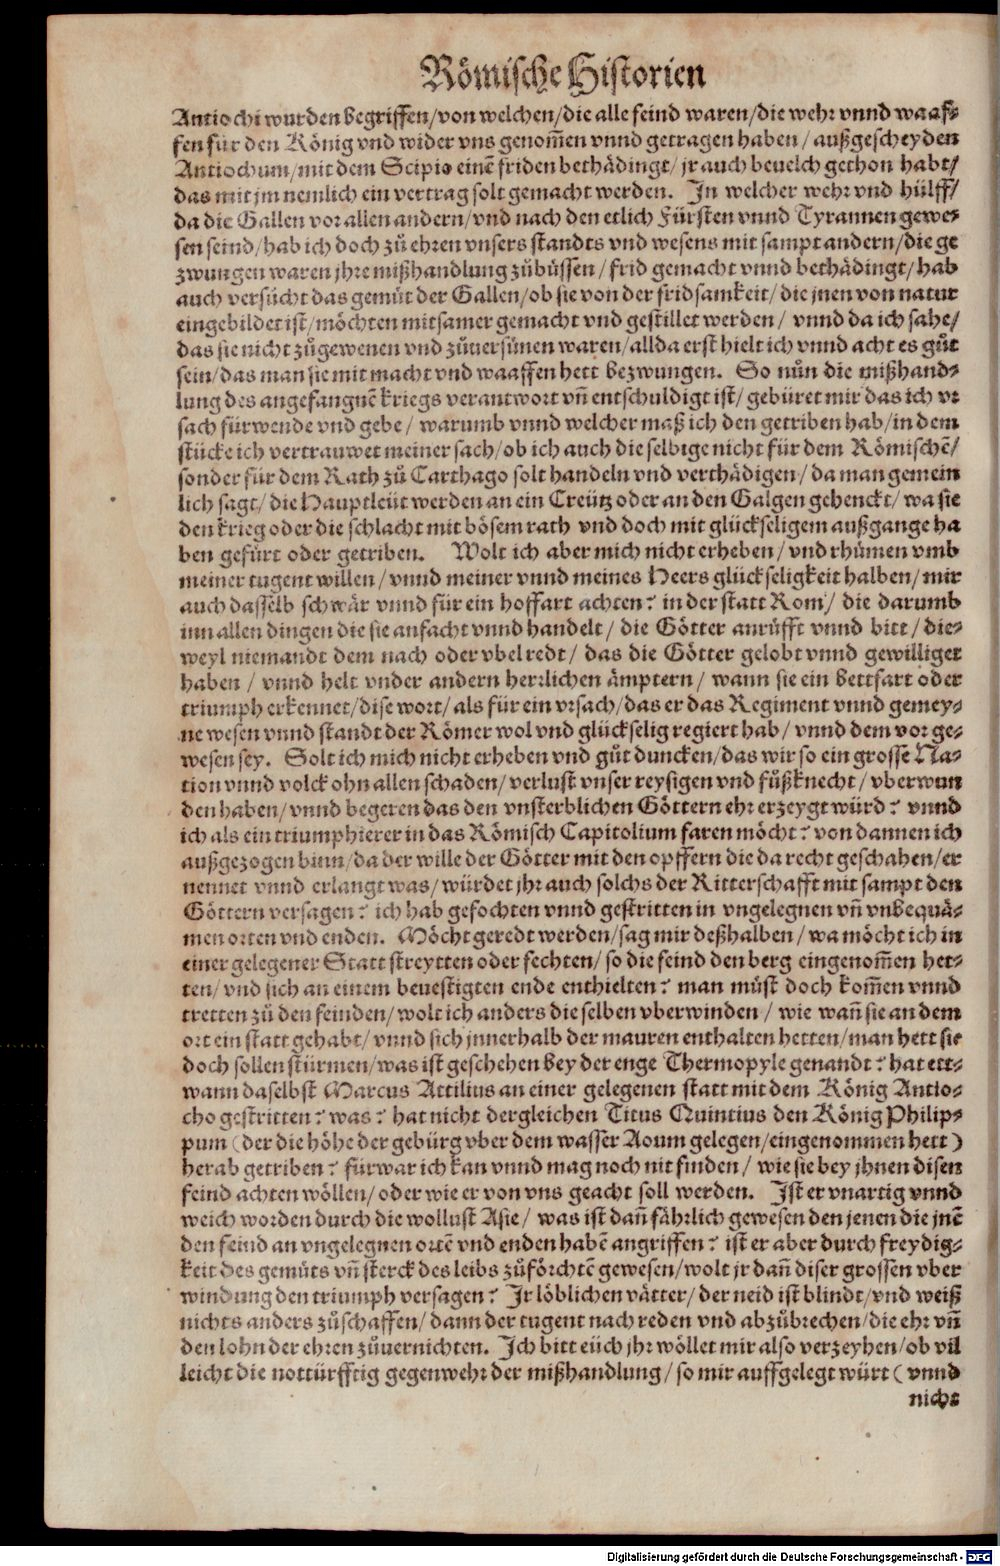 Römische Historien
Antiochi wurden begriffen/von welchen/die alle feind waren/die wehr vnnd waaf⸗
fen für den König vnd wider vns genom̃en vnnd getragen haben/außgescheyden
Antiochum/mit dem Scipio einẽ friden bethädingt/jr auch beuelch gethon habt/
das mit jm nemlich ein vertrag solt gemacht werden. In welcher wehr vnd hülff/
da die Gallen vor allen andern/vnd nach den etlich Fürsten vnnd Tyrannen gewe⸗
sen seind/hab ich doch zů ehren vnsers standts vnd wesens mit sampt andern/die ge
zwungen waren jhre mißhandlung zůbüssen/frid gemacht vnnd bethädingt/hab
auch versůcht das gemüt der Gallen/ob sie von der fridsamkeit/die jnen von natur
eingebildet ist/möchten mitsamer gemacht vnd gestillet werden/vnnd da ich sahe/
das sie nicht zůgewenen vnd zůuersünen waren/allda erst hielt ich vnnd acht es gůt
sein/das man sie mit macht vnd waaffen hett bezwungen. So nůn die mißhand⸗
lung des angefangnẽ kriegs verantwort vñ entschuldigt ist/gebüret mir das ich vr
sach fürwende vnd gebe/warumb vnnd welcher maß ich den getriben hab/in dem
stücke ich vertrauwet meiner sach/ob ich auch die selbige nicht für dem Römischẽ/
sonder für dem Rath zů Carthago solt handeln vnd verthädigen/da man gemein
lich sagt/die Hauptleüt werden an ein Creütz oder an den Galgen gehenckt/wa sie
den krieg oder die schlacht mit bösem rath vnd doch mit glückseligem außgange ha
ben gefürt oder getriben. Wolt ich aber mich nicht erheben/vnd rhümen vmb
meiner tugent willen/vnnd meiner vnnd meines Heers glückseligkeit halben/mir
auch dasselb schwär vnnd für ein hoffart achten? in der statt Rom/die darumb
inn allen dingen die sie anfacht vnnd handelt/die Götter anrüfft vnnd bitt/die⸗
weyl niemandt dem nach oder vbel redt/das die Götter gelobt vnnd gewilliget
haben/vnnd helt vnder andern herrlichen ämptern/wann sie ein bettfart oder
triumph erkennet/dise wort/als für ein vrsach/das er das Regiment vnnd gemey⸗
ne wesen vnnd standt der Römer wol vnd glückselig regiert hab/vnnd dem vor ge⸗
wesen sey. Solt ich mich nicht erheben vnd gůt duncken/das wir so ein grosse Na⸗
tion vnnd volck ohn allen schaden/verlust vnser reysigen vnd fůßknecht/vberwun
den haben/vnnd begeren das den vnsterblichen Göttern ehr erzeygt würd? vnnd
ich als ein triumphierer in das Römisch Capitolium faren möcht? von dannen ich
außgezogen binn/da der wille der Götter mit den opffern die da recht geschahen/er
nennet vnnd erlangt was/würdet jhr auch solchs der Ritterschafft mit sampt den
Göttern versagen? ich hab gefochten vnnd gestritten in vngelegnen vñ vnbequä⸗
men orten vnd enden. Möcht geredt werden/sag mir deßhalben/wa möcht ich in
einer gelegener Statt streytten oder fechten/so die feind den berg eingenom̃en het⸗
ten/vnd sich an einem beuestigten ende enthielten? man můst doch kom̃en vnnd
tretten zů den feinden/wolt ich anders die selben vberwinden/wie wañ sie an dem
ort ein statt gehabt/vnnd sich jnnerhalb der mauren enthalten hetten/man hett sie
doch sollen stürmen/was ist geschehen bey der enge Thermopyle genandt? hat ett⸗
wann daselbst Marcus Attilius an einer gelegenen statt mit dem König Antio⸗
cho gestritten? was? hat nicht dergleichen Titus Quintius den König Philip⸗
pum (der die höhe der gebürg vber dem wasser Aoum gelegen/eingenommen hett)
herab getriben? fürwar ich kan vnnd mag noch nit finden/wie sie bey jhnen disen
feind achten wöllen/oder wie er von vns geacht soll werden. Ist er vnartig vnnd
weich worden durch die wollust Asie/was ist dañ fährlich gewesen den jenen die jnẽ
den feind an vngelegnen ortẽ vnd enden habẽ angriffen? ist er aber durch freydig⸗
keit des gemüts vñ sterck des leibs zůförchtẽ gewesen/wolt jr dañ diser grossen vber
windung den triumph versagen? Ir löblichen vätter/der neid ist blindt/vnd weiß
nichts anders zůschaffen/dann der tugent nach reden vnd abzůbrechen/die ehr vñ
den lohn der ehren zůuernichten. Ich bitt eüch jhr wöllet mir also verzeyhen/ob vil
leicht die nottürfftig gegenwehr der mißhandlung/so mir auffgelegt würt (vnnd
nicht
Digitalisierung gefördert durch die Deutsche Forschungsgemeinschaft - DFG